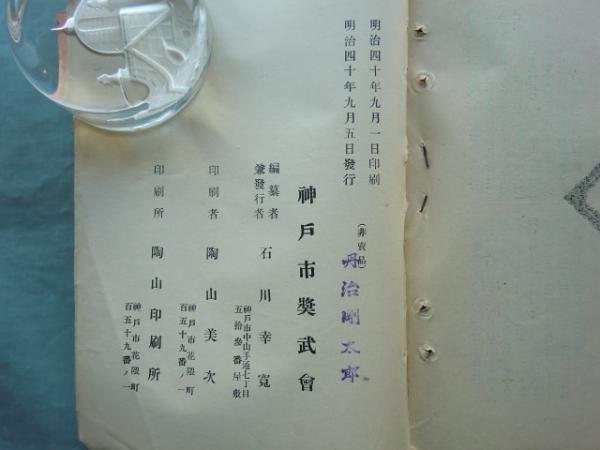 明治四十年九月一日印刷
明治四十年九月五日發行
(非賣品)
丹治剛太郎
神戸市奬武會
編纂者
兼發行者
石川幸寛
神戸市中山手通七丁目
五拾參番屋敷
印刷者
陶山美次
神戸市花隈町
百五十九番ノ一
印刷所
陶山印刷所
神戸市花隈町
百五十九番ノ一